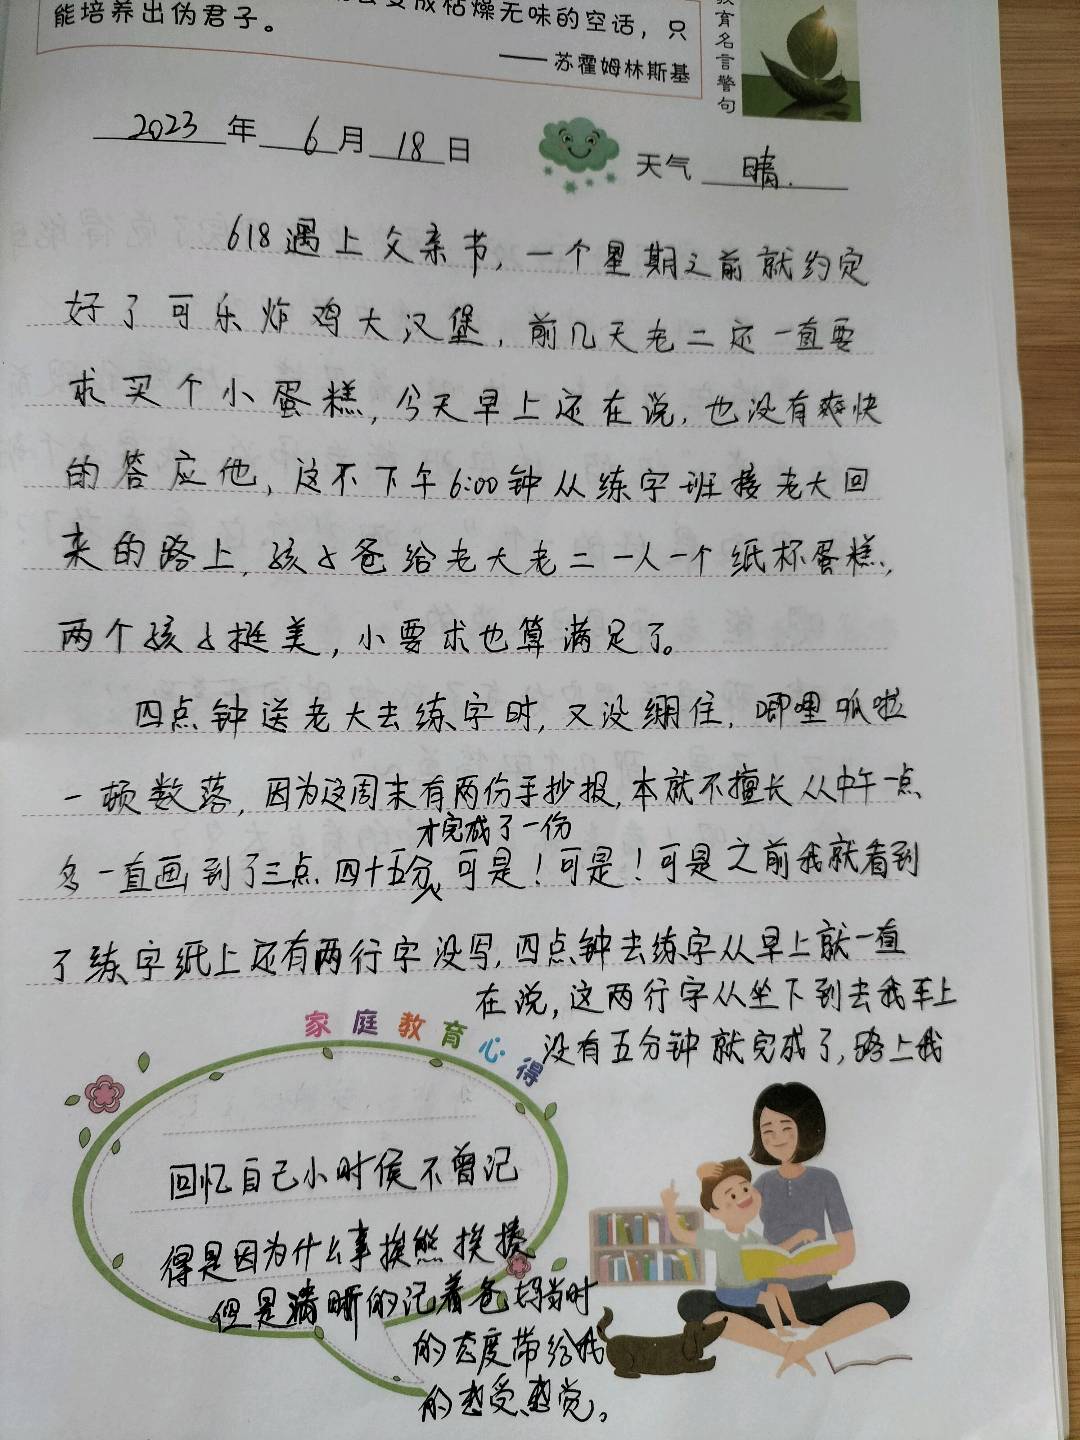 能培养出伪君子。
变成枯燥无味的空话，只
——苏霍姆林斯基
育名言警句
2023年6月18日
天气 晴.
618遇上父亲节，一个星期之前就约定
好了可乐炸鸡大汉堡，前几天老二还一直要
求买个小蛋糕，今天早上还在说，也没有爽快
的答应他，这不下午6:00钟从练字班接老大回
来的路上，孩子爸给老大老二一人一个纸杯蛋糕，
两个孩子挺美，小要求也算满足了。
四点钟送老大去练字时，又没绷住，唧哩呱啦
一顿数落，因为这周末有两份手抄报，本就不擅长从中午一点
才完成了一份
多一直画到了三点四十五分，可是！可是！可是之前我就看到
了练字纸上还有两行字没写，四点钟去练字从早上就一直
在说，这两行字从坐下到去我车上
没有五分钟就完成了，路上我
家庭教育心得
回忆自己小时侯不曾记
得是因为什么事挨熊挨揍
但是清晰的记着爸妈当时
的态度带给我
的感受、感觉。